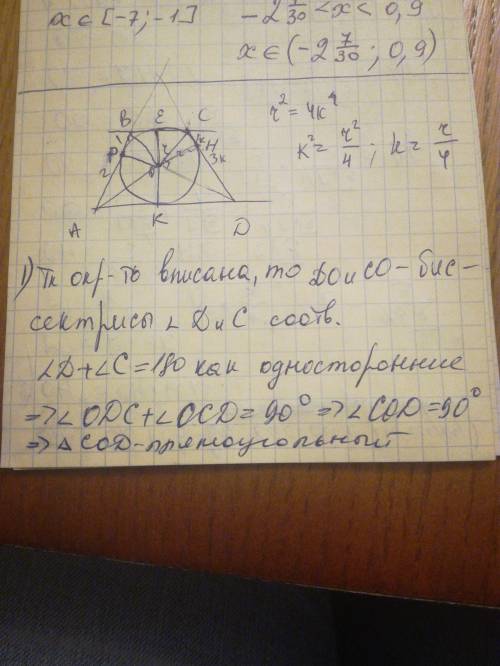 x ∈ [-7; -1]
-2 7/30 < x < 0,9
x ∈ (-2 7/30; 0,9)
B E C
r² = 4k⁴
k² = r²/4; k = r/4
1 P 2
r
k H 3k
O
A K D
1) Тк окр-ть вписана, то DO и CO - бис-
сектрисы ∠ D и C соотв.
∠D+∠C=180 как односторонние
=> ∠ODC+∠OCD=90° => ∠COD=90°
=> △COD-прямоугольный